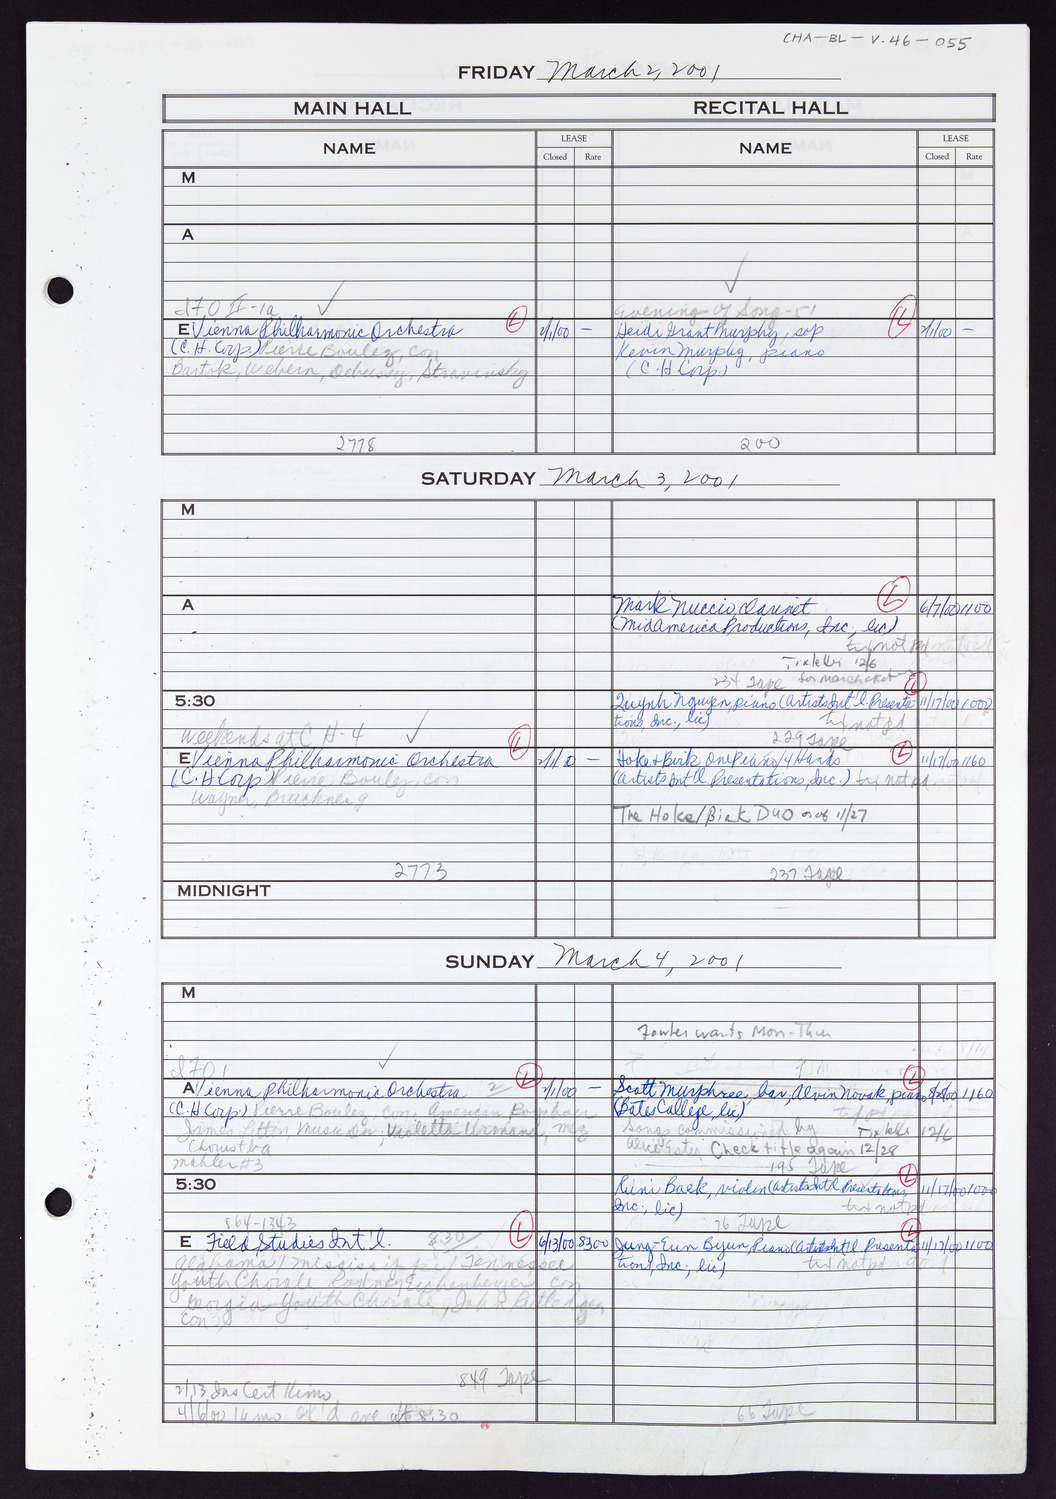 CHA-BL-V.46-055
FRIDAY March 2, 2001
MAIN HALL RECITAL HALL
NAME LEASE NAME LEASE
Closed Rate Closed Rate
M
A
IFO II-1a
Evening of Song-51
E Vienna Philharmonic Orchestra L 2/1/00 —
(C.H. Corp.) Pierre Boulez, Con
Bartok, Webern, Debussy, Stravinsky
2778
Heidi Grant Murphy, sop L 2/1/00 —
Kevin Murphy, piano
(C.H. Corp.)
200
SATURDAY March 3, 2001
M
A
Mark Nuccio, clarinet L 6/7/00 1100
(MidAmerica Productions, Inc., lic)
tix not pd
Tix le 12/6
234 Tape
5:30
Quynh Nguyen, piano (Artists Int'l Presenta L 11/17/00 1000
tions, Inc., lic)
tix not pd
229 Tape
Weekends at C H-4
E Vienna Philharmonic Orchestra L 2/1/0 —
(C.H Corp) Pierre Boulez, con
Wagner, Bruckner 9
2773
Hoke & Birk, One Piano/4 Hands L 11/17/00 1160
(Artists Int'l Presentations, Inc.) tix not pd.
The Hoke/Birk Duo as of 11/27
237 Tape
MIDNIGHT
SUNDAY March 4, 2001
M
Fowler wants Mon-Thur
IFO 1
A Vienna Philharmonic Orchestra 2 L 2/1/00 —
(C H Corp.) Pierre Boulez, Con. American Boychoir
James Litton, Music Dir, Violetta Urmana, mez
Mahler #3
Scott Murphree, bar, Alvin Novak piano L 1160
(Bates College, lic)
Songs commissioned by
Alice Esty Check title again 12/28
12/6
195 Tape
5:30
Rini Baek, violin (Artists Int'l Presentations, L 11/17/00 1000
Inc., lic)
tix not pd
76 Tape
864-1343
E Field Studies Int'l. 8:30 L 6/13/00 8300
Alabama/Mississippi/Tennessee
Youth Chorale Rodney Eichenberger, con
Georgia Youth Chorale, John Rutledge,
con
849 Tape
2/13 Ins Cert Kimo
4/6/00 Kimo ok'd eve at 8:30
Jung-Eun Byun, Piano (Artists Int'l Presenta L 11/17/00 1100
tions, Inc., lic)
tix not pd
66 Tape